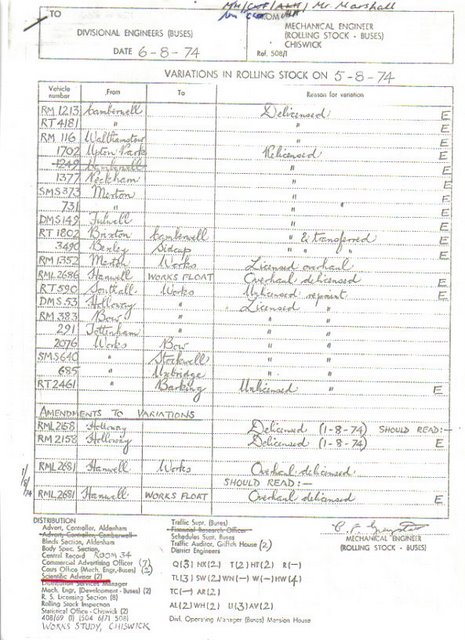 MM/CXP/ALH/ Mr. Marshall
TO
FROM
DIVISIONAL ENGINEERS (BUSES)
MECHANICAL ENGINEER
(ROLLING STOCK - BUSES)
CHISWICK
DATE 6-8-74
Ref. 508/1
VARIATIONS IN ROLLING STOCK ON 5-8-74
Vehicle number From To Reason for variation
RM 1213 Camberwell Delicensed E
RT 4181 " " E
RM 116 Walthamstow " E
1702 Upton Park Relicensed E
1249 Camberwell " E
1377 Peckham " E
SMS 373 Merton " E
731 " " " E
DMS 149 Fulwell " E
RT 1802 Brixton Camberwell " & transferred E
3490 Bexley Sidcup " " " E
RM 1352 Merton Works Licensed overhaul
RML 2686 Hanwell WORKS FLOAT Overhaul delicensed E
RT 590 Southall Works Unlicensed repaint E
DMS 53 Holloway " Licensed "
RM 383 Bow " " "
291 Tottenham " " "
2076 Works Bow " "
SMS 640 " Stockwell " "
685 " Uxbridge " "
RT 2461 " Barking Unlicensed " E
AMENDMENTS TO VARIATIONS
RML 2658 Holloway Delicensed (1-8-74) SHOULD READ:-
RM 2158 Holloway Delicensed (1-8-74) E
RML 2681 Hanwell Works Overhaul delicensed
SHOULD READ:-
1/8/74
RML 2681 Hanwell WORKS FLOAT Overhaul delicensed E
DISTRIBUTION
Advert. Controller, Aldenham
Advert. Controller, Camberwell
Blinds Section, Aldenham
Body Spec. Section,
Central Record ROOM 34
Commercial Advertising Officer (7)
Cours Office (Mech. Engr.-Buses) (2)
Scientific Advisor (2)
Distribution Services Manager
Mech. Engr. (Development - Buses) (2)
R. S. Licensing Section (8)
Rolling Stock Inspection
Statistical Office - Chiswick (2)
408/69 (1) 504 61/1 508
WORKS STUDY, CHISWICK
Traffic Supt. (Buses)
Financial Research Officer
Schedules Supt. Buses
Traffic Auditor, Griffith House (2)
District Engineers
Q(3) NX(2) T(2) HT(2) R(-)
TL(3) SW(2) WN(-) W(-) HW(4)
TC(-) AR(2)
AL(2) WH(2) U(3) AV(2)
Divl. Operating Manager (Buses) Mansion House
MECHANICAL ENGINEER
(ROLLING STOCK - BUSES)